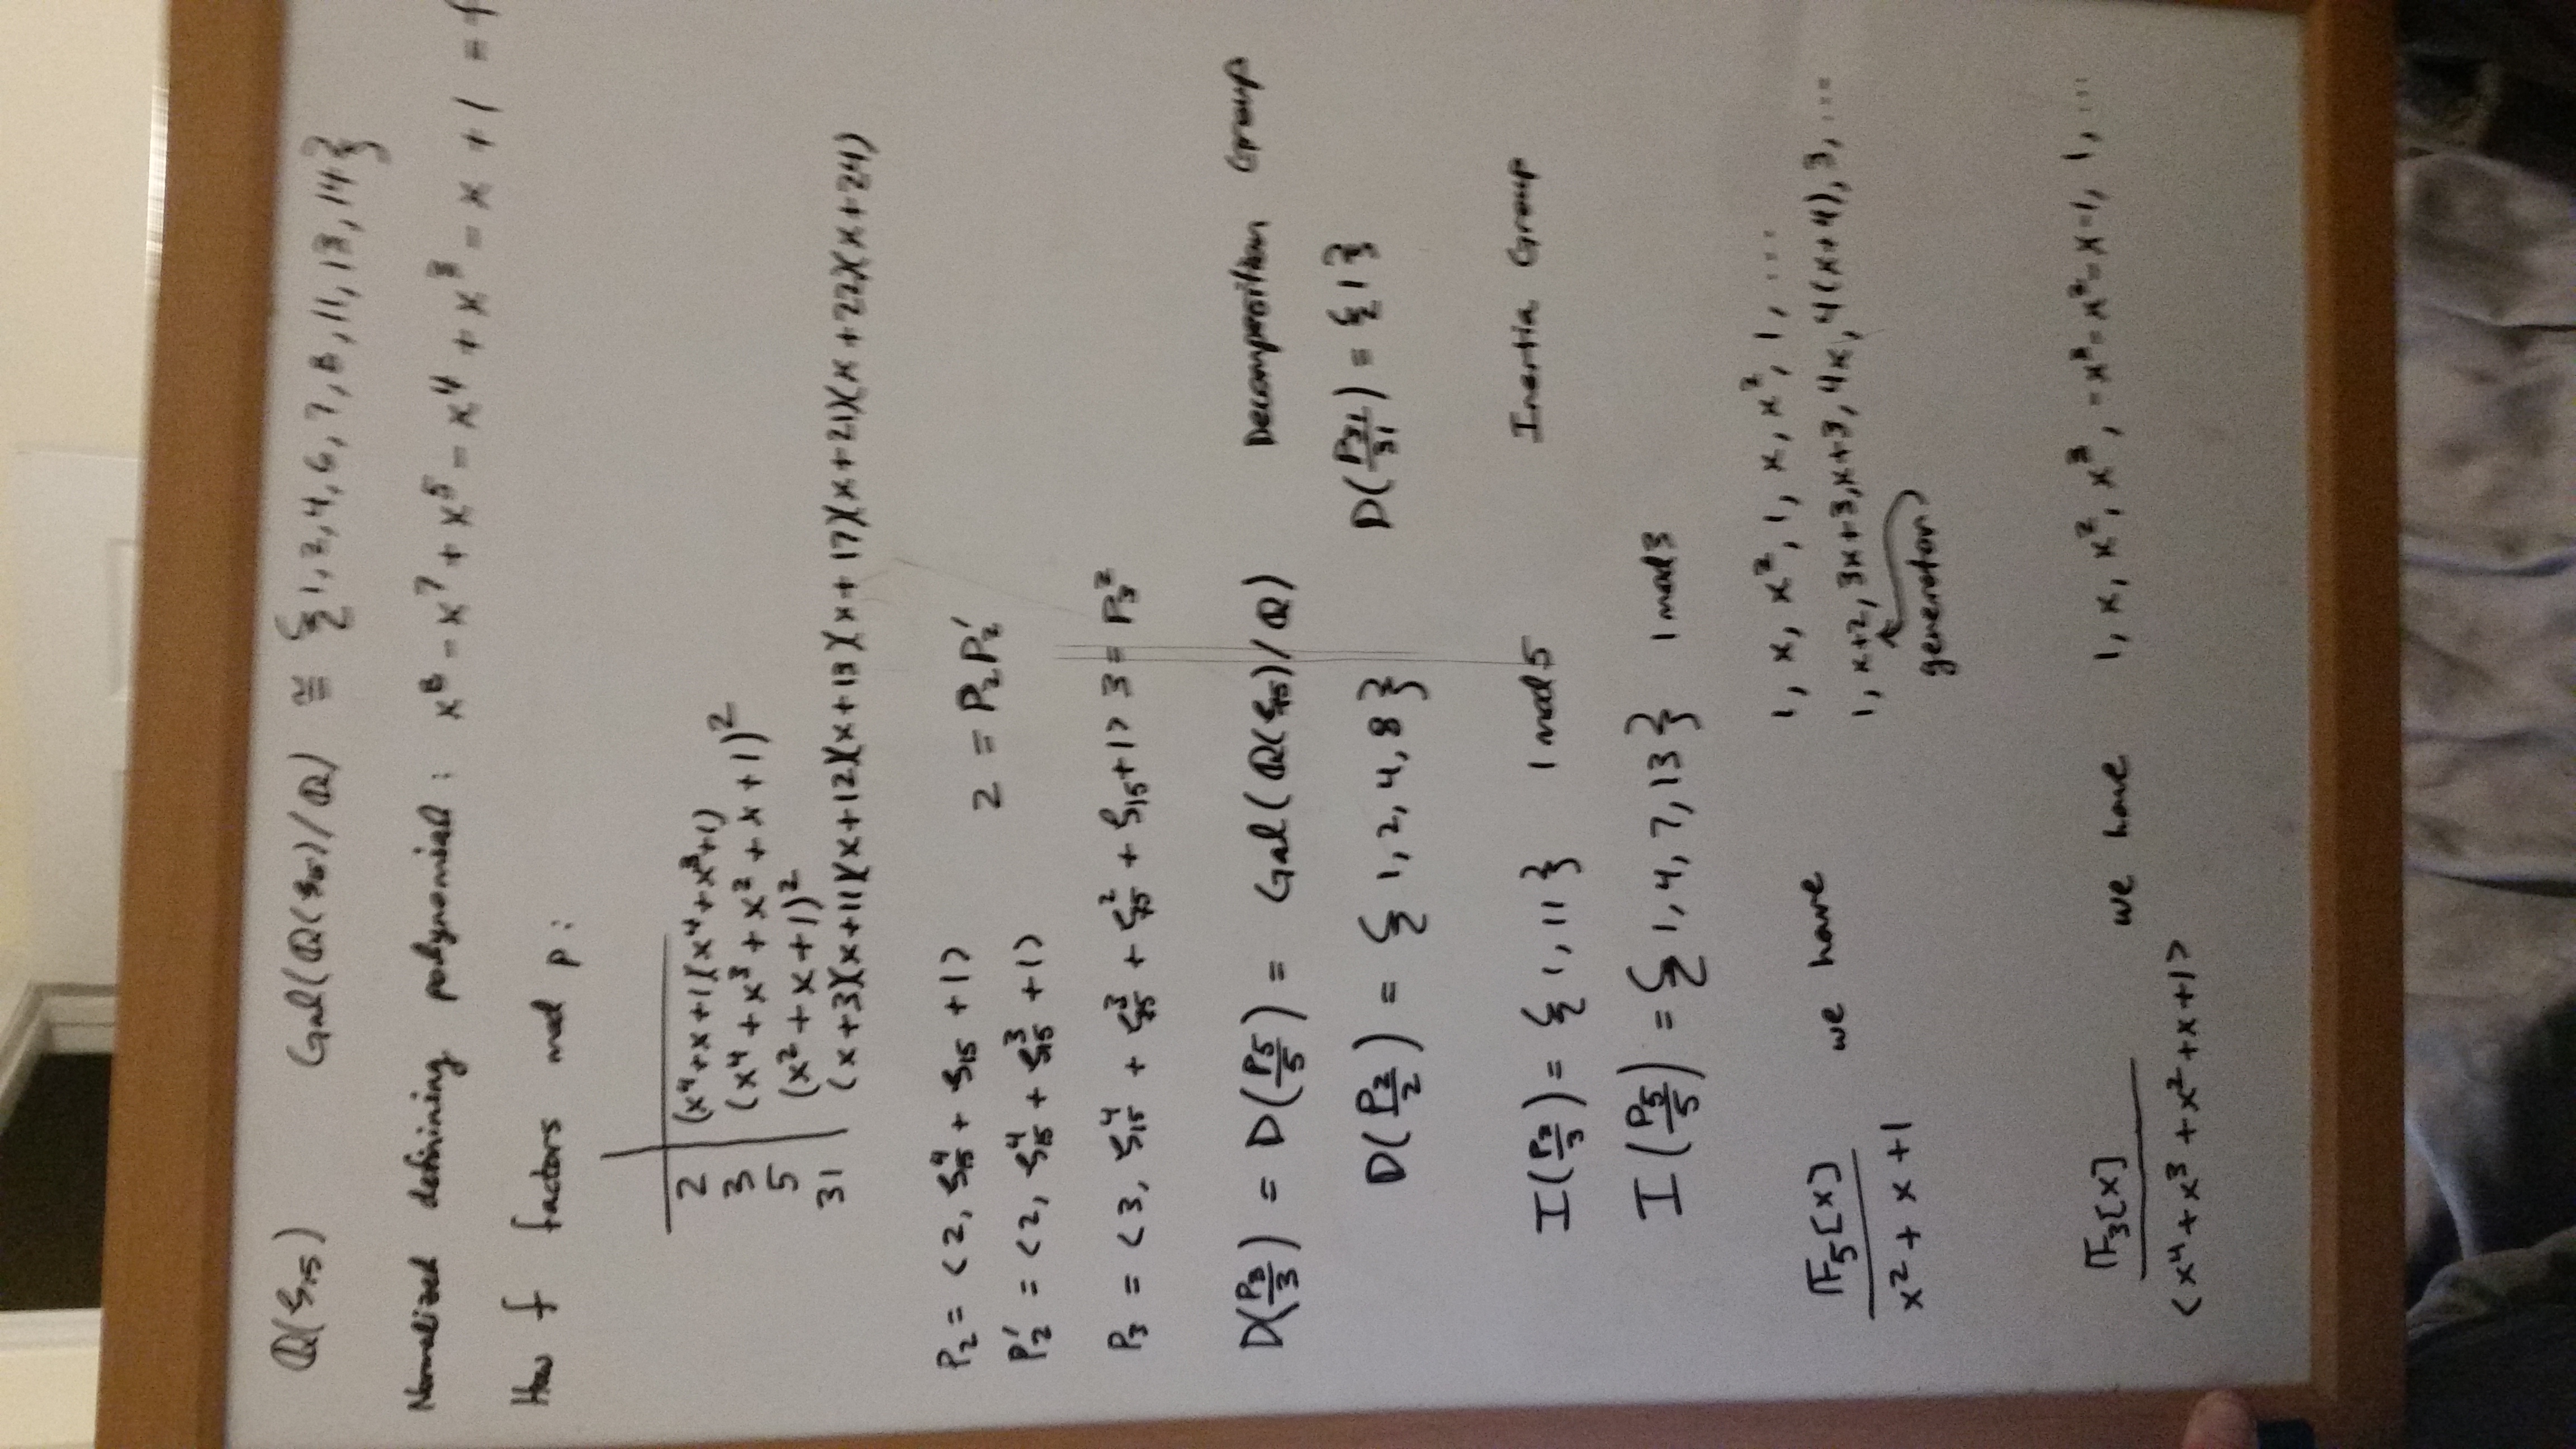 ℚ(ζ₁₅) Gal(ℚ(ζ₁₅)/ℚ) ≅ {1,2,4,6,7,8,11,13,14}
Normalized definining polynomial: x⁸ - x⁷ + x⁵ - x⁴ + x³ - x + 1 = f
How f factors mod p:
2 | (x⁴+x+1)(x⁴+x³+1)
3 | (x⁴+x³+x²+x+1)²
5 | (x²+x+1)²
31 | (x+3)(x+11)(x+12)(x+13)(x+17)(x+21)(x+22)(x+24)
P₂ = <2, ζ₁₅⁴ + ζ₁₅ + 1> 2 = P₂P₂′
P₂′ = <2, ζ₁₅⁴ + ζ₁₅³ + 1>
P₃ = <3, ζ₁₅⁴ + ζ₁₅³ + ζ₁₅² + ζ₁₅ + 1> 3 = P₃²
D(P₃/3) = D(P₅/5) = Gal(ℚ(ζ₁₅)/ℚ) Decomposition Group
D(P₂/2) = {1,2,4,8} D(P₃₁/31) = {1}
I(P₃/3) = {1,11} 1 mod 5 Inertia Group
I(P₅/5) = {1,4,7,13} 1 mod 3
1, x, x², 1, x, x², 1, ...
𝔽₅[x] / x²+x+1 we have 1, x+2, 3x+3, x+3, 4x, 4(x+4), 3, ...
generator
𝔽₃[x] / <x⁴+x³+x²+x+1> we have 1, x, x², x³, -x³-x²-x-1, 1, ...